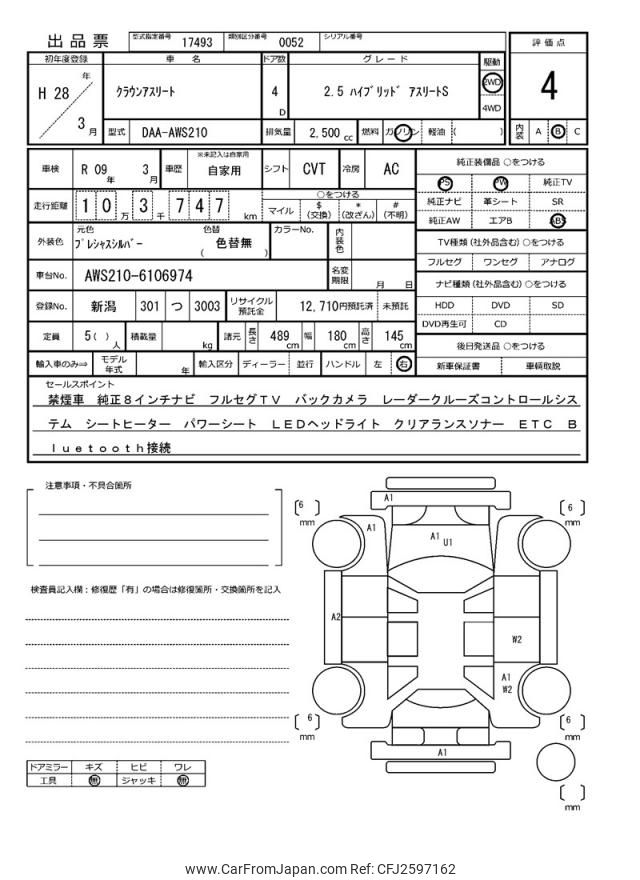 出品票 型式指定番号 17493 類別区分番号 0052 シリアル番号
評価点
初年度登録 車 名 ドア数 グレード 駆動
H 28 年 3 月 クラウンアスリート 4 D 2.5 ハイブリッド アスリートS 2WD 4WD
4
型式 DAA-AWS210 排気量 2,500 cc 燃料 ガソリン 軽油 ( )
内装 A B C
車検 R 09 年 3 月 車歴 ※未記入は自家用 自家用 シフト CVT 冷房 AC
走行距離 1 0 万 3 千 7 4 7 km
○をつける
マイル $ (交換) * (改ざん) # (不明)
外装色 元色 プレシャスシルバー 色替 ( 色替無 ) カラーNo. 内装色
車台No. AWS210-6106974 名変期限 月 日
登録No. 新潟 301 つ 3003 リサイクル預託金 12,710円預託済 未預託
定員 5( ) 人 積載量 kg 諸元 長さ 489 cm 幅 180 cm 高さ 145 cm
輸入車のみ⇒ モデル年式 年 輸入区分 ディーラー 並行 ハンドル 左 右
純正装備品 ○をつける
PS PW 純正TV
純正ナビ 革シート SR
純正AW エアB ABS
TV種類(社外品含む) ○をつける
フルセグ ワンセグ アナログ
ナビ種類(社外品含む) ○をつける
HDD DVD SD
DVD再生可 CD
後日発送品 ○をつける
新車保証書 車輌取説
セールスポイント
禁煙車 純正8インチナビ フルセグTV バックカメラ レーダークルーズコントロールシス
テム シートヒーター パワーシート LEDヘッドライト クリアランスソナー ETC B
luetooth接続
注意事項・不具合箇所
検査員記入欄:修復歴「有」の場合は修復箇所・交換箇所を記入
ドアミラー キズ ヒビ ワレ
工具 無 ジャッキ 無
A1
6 mm
6 mm
A1
A1
U1
A2
W2
A1
W2
6 mm
6 mm
A1
mm
www.CarFromJapan.com Ref: CFJ2597162